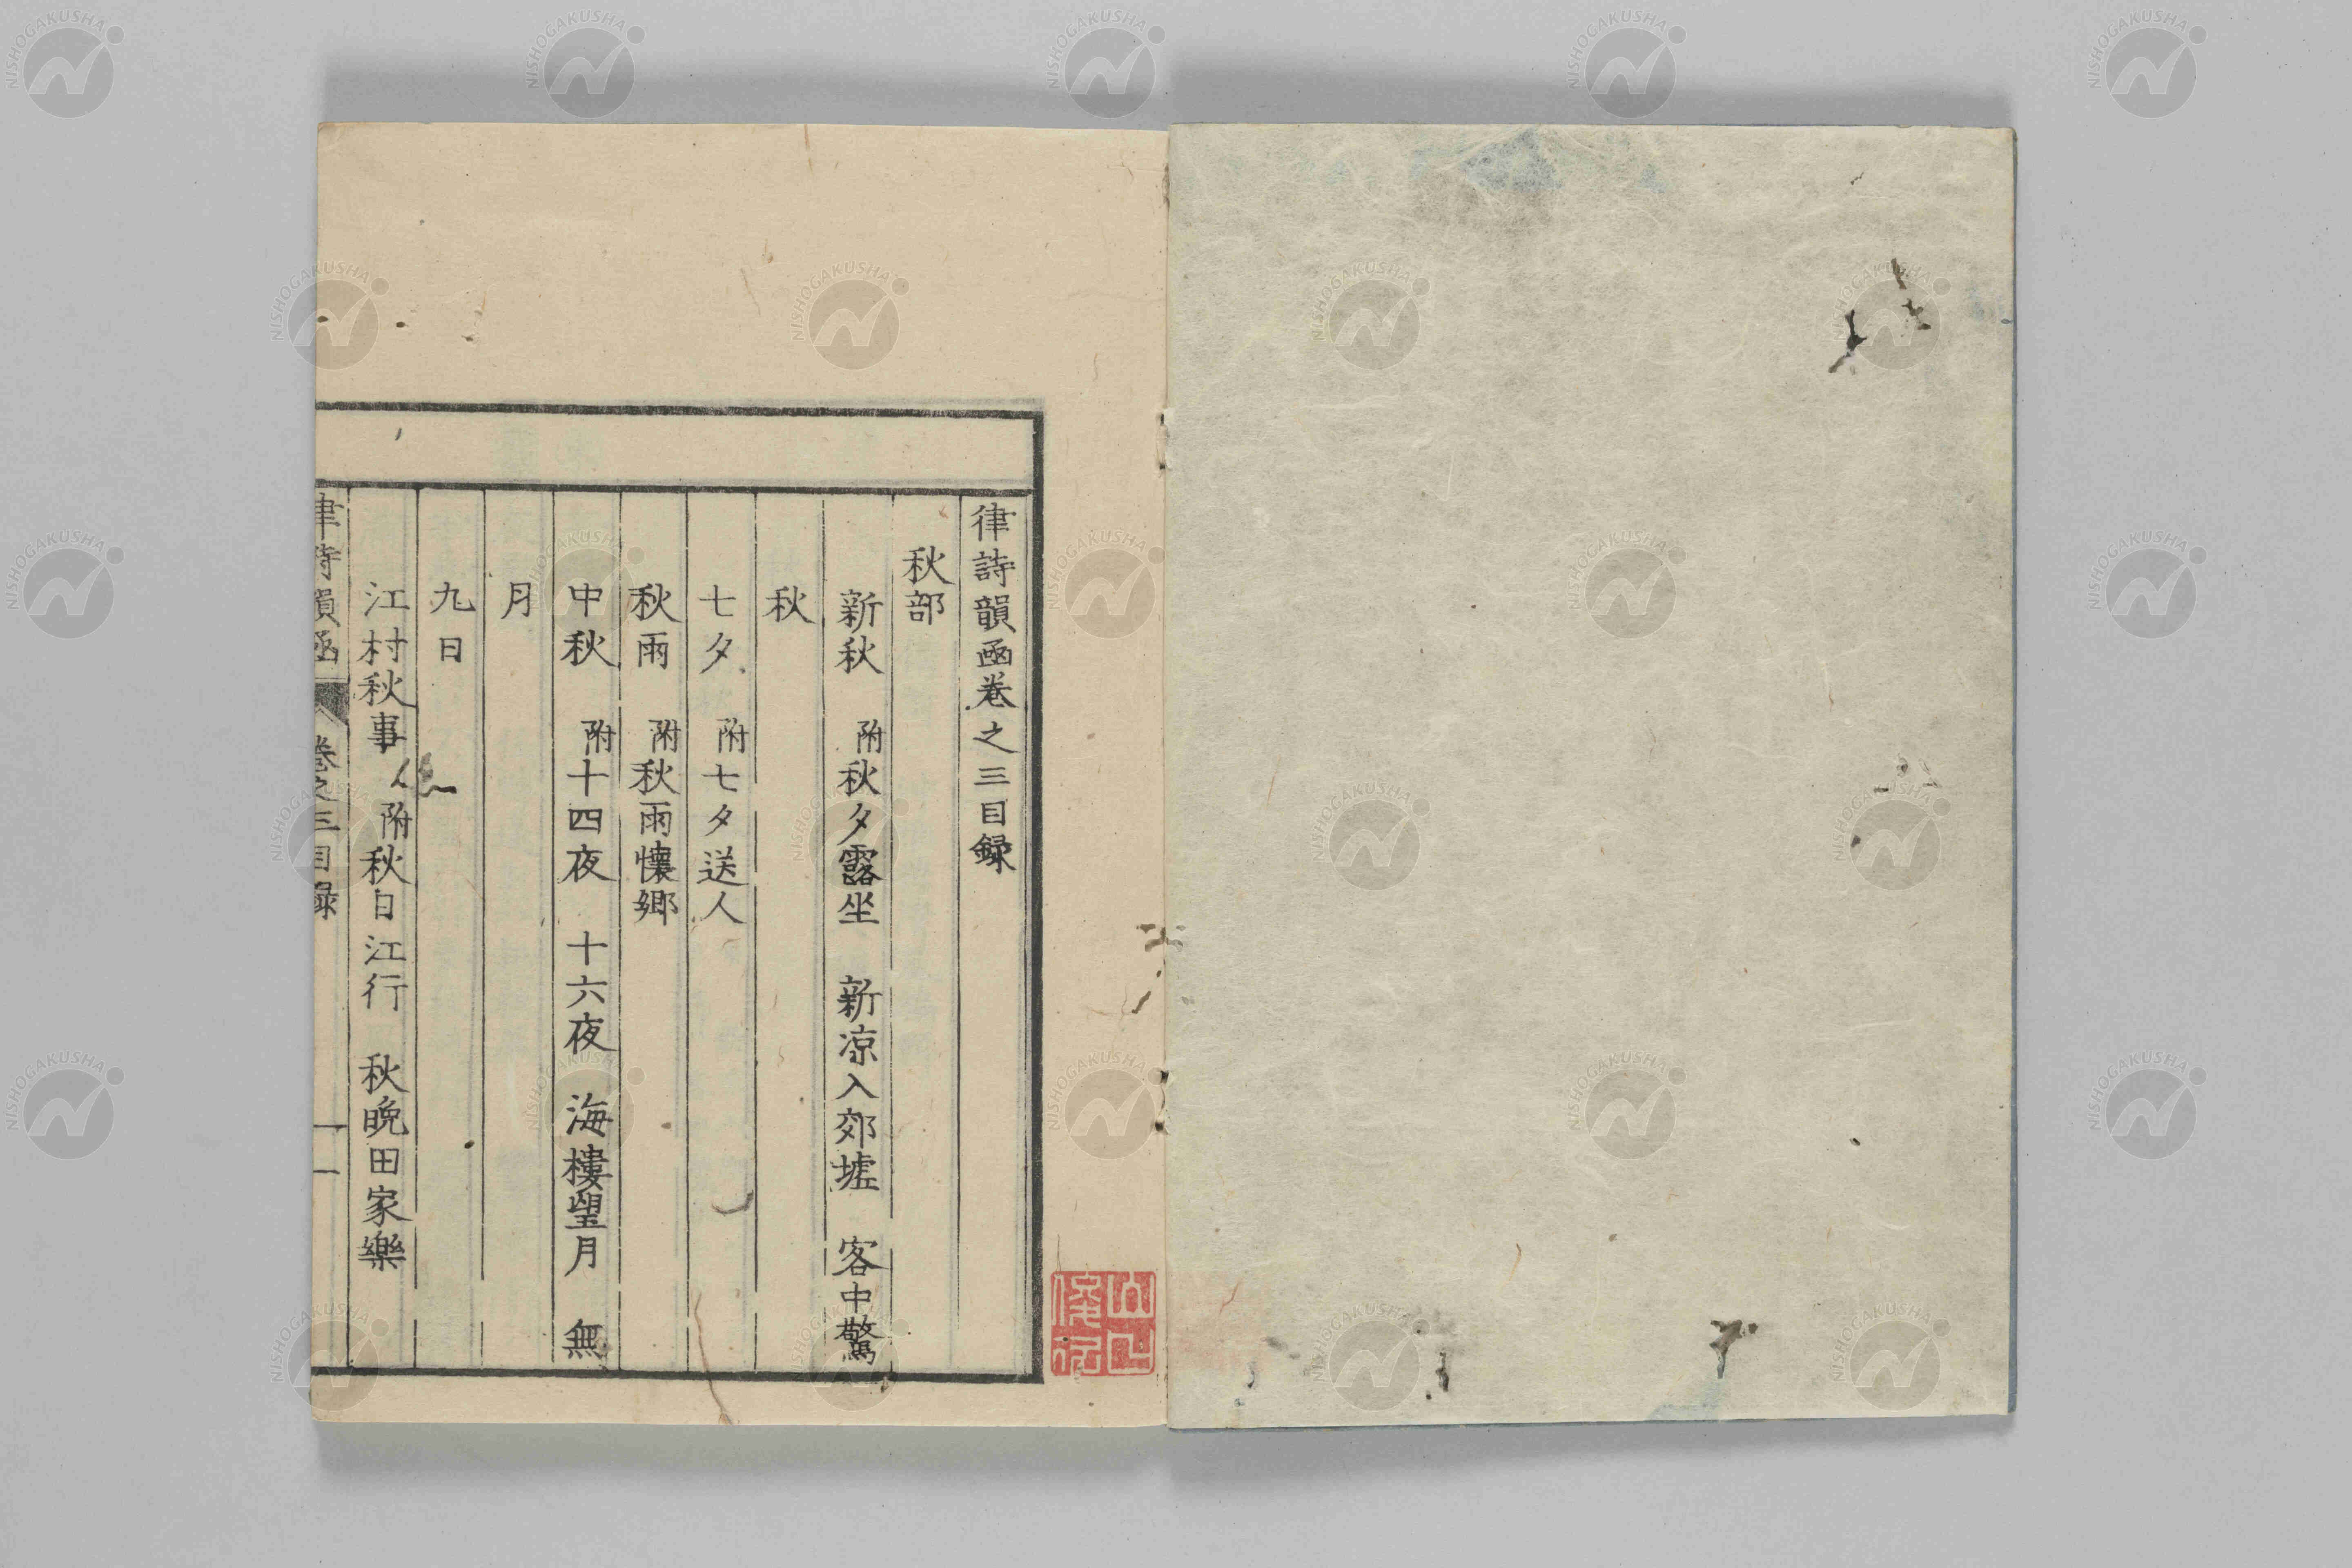 律詩韻函卷之三目録
秋部
新秋 附秋夕露坐 新凉入郊墟 客中驚
秋
七夕 附七夕送人
秋雨 附秋雨懐郷
中秋 附十四夜 十六夜 海樓望月 無
月
九日
江村秋事 附秋日江行 秋晩田家樂
律詩韻函 卷之三目録 一
NISHOGAKUSHA